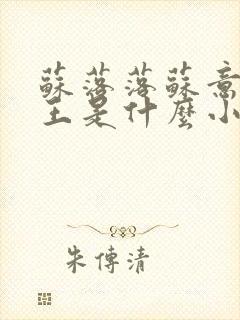 蘇落落蘇意
主是什麼小
朱傳清